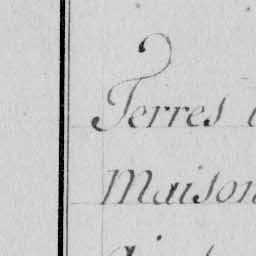 Terres
Maison